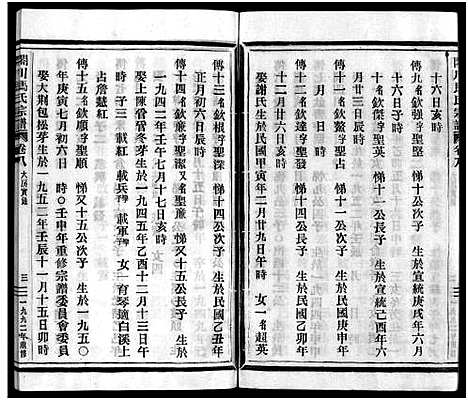 十六日亥時
傳十名欽强字聖
悌又十公次子
生於宣統庚戌年六月
廿三日辰時
傳十一名欽鰲字聖占
悌十一公長子
生於宣統己酉年六
月廿三日辰時
傳十二名欽傑字聖
悌十一公次子
生於民國庚申年
十二月廿六日亥時
娶謝氏生於民國甲寅年二月廿九日午時
女一名超英
傳十三名欽根字聖
悌又十四公次子
生於民國乙卯年
傳十四名欽廉字聖潔
又名聖廉
悌又十五公長子
生於
一九四二年壬午十月十七日亥時
娶上陳
冬芽生於一九四五年乙酉十二月十三日午
時
子三
載
載兵
載軍
女一育琴適白溪上
占詹慧紅
傳十五名欽順字聖順
悌又十五公次子
生於一九五〇
年庚寅七月初六日
時
〇壬申年重修宗譜委員會委員
娶大荆包松芽生於一九五二年壬辰十一月十五日卯時
宗譜
卷八
大房實錄
三
一九九二年重修